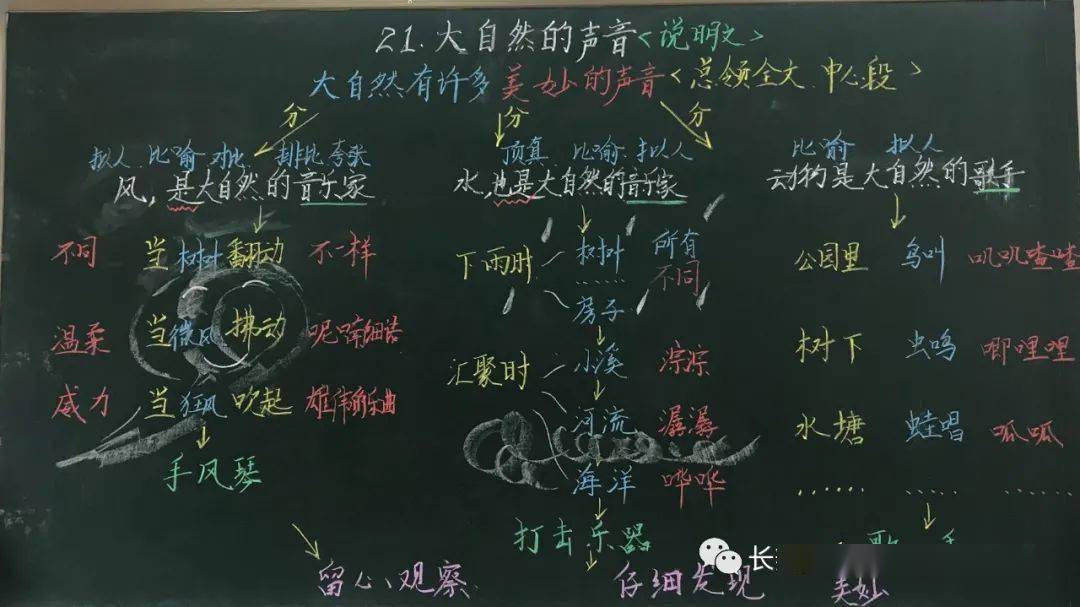 21.大自然的声音<说明文>
大自然有许多美妙的声音<总领全文 中心段>
分 分 分
拟人 比喻 对比 排比 夸张
风,是大自然的音乐家
不同 当树叶翻动 不一样
温柔 当微风拂动 呢喃细语
威力 当狂风吹起 雄伟的乐曲
手风琴
顶真 比喻 拟人
水,也是大自然的音乐家
下雨时 树叶 所有
…… 不同
房子
汇聚时 小溪 淙淙
河流 潺潺
海洋 哗哗
打击乐器
比喻 拟人
动物是大自然的歌手
公园里 鸟叫 叽叽喳喳
树下 虫鸣 唧哩哩
水塘 蛙唱 呱呱
…… …… ……
歌
留心观察 仔细发现 美妙
长